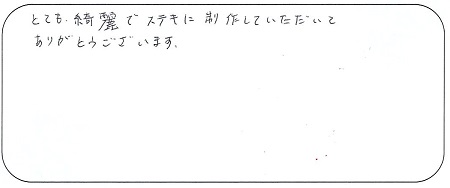 とても綺麗でステキに制作していただいて
ありがとうございます。